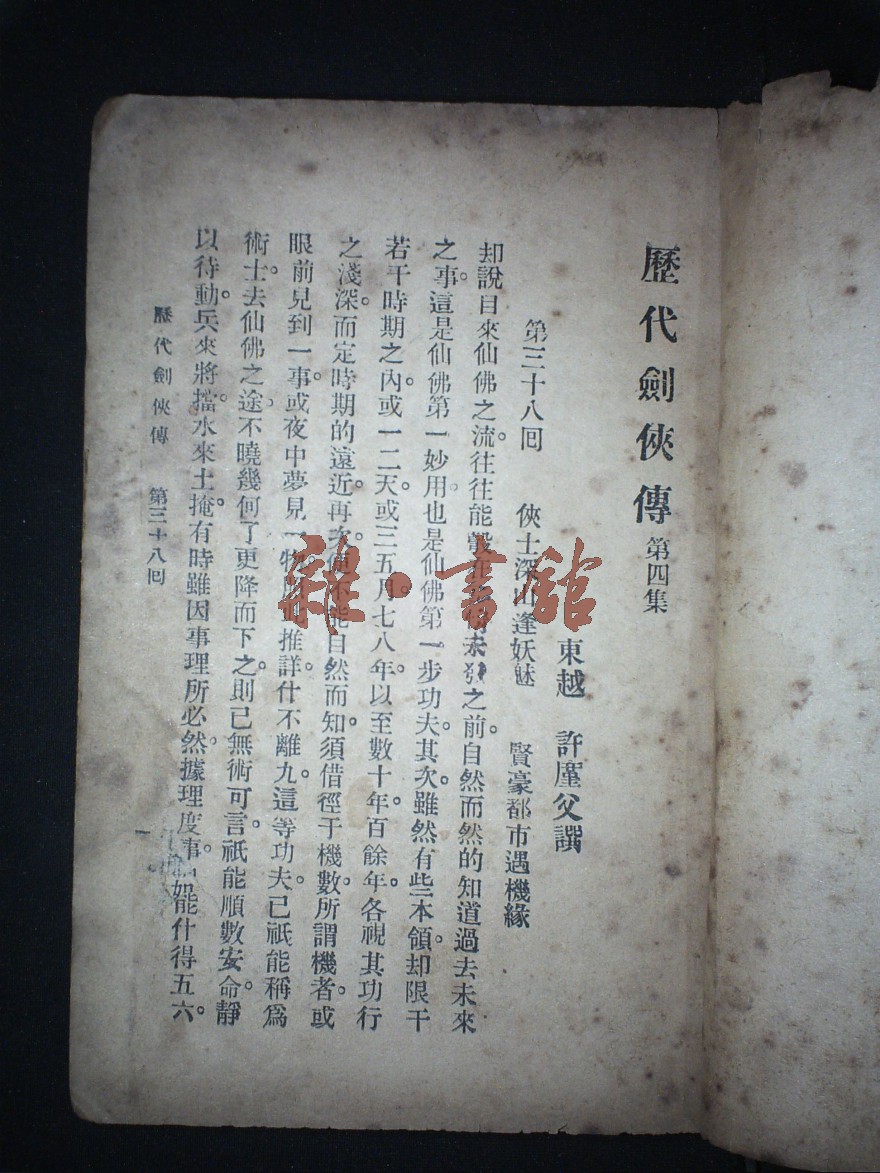 歷代劍俠傳 第四集
東越 許廑父譔
第三十八回 俠士深山逢妖魅 賢豪都市遇機緣
却說自來仙佛之流。往往能彀在未發之前。自然而然的知道過去未來
之事。這是仙佛第一妙用。也是仙佛第一步功夫。其次雖然有些本領。却限于
若干時期之內。或一二天。或三五月。七八年。以至數十年。百餘年。各視其功行
之淺深。而定時期的遠近。再次便不能自然而知。須借徑于機數。所謂機者。或
眼前見到一事。或夜中夢見一物。推詳。什不離九。這等功夫。已祇能稱爲
術士。去仙佛之途。不曉幾何了。更降而下之。則已無術可言。祇能順數安命。靜
以待動。兵來將擋。水來土掩。有時雖因事理所必然。據理度事。能什得五六。
歷代劍俠傳 第三十八回 一
雜·書館